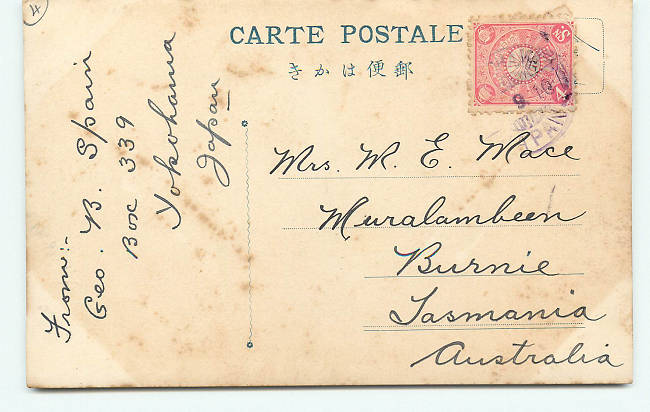 4
CARTE POSTALE
きかは便郵
From:-
Geo. B. Spain
Box 339
Yokohama
Japan
Mrs. W. E. Mace
Muralambeen
Burnie
Tasmania
Australia